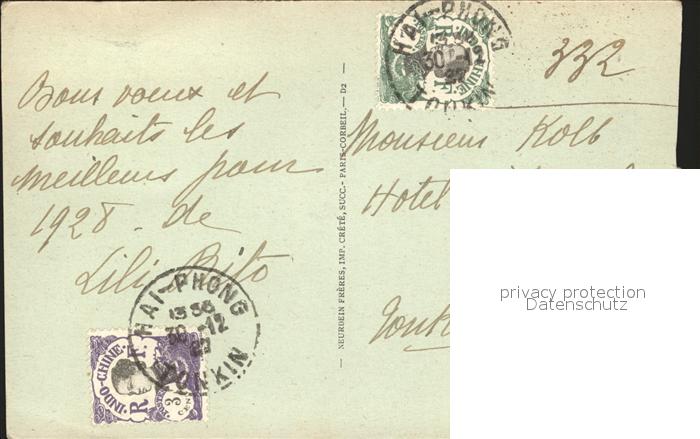 Bons voeux et
souhaits les
meilleurs pour
1928 - de
Lili Bito
HAI-PHONG
13 35
30 -12
27
TONKIN
INDO-CHINE
R F
3
NEURDEIN FRÈRES, IMP. CRÉTÉ, SUCC.- PARIS-CORBEIL. — D2
HAI-PHONG
30 -12
27
INDO-CHINE
R F
332
Monsieur Kolb
Hotel
Tonk
privacy protection
Datenschutz